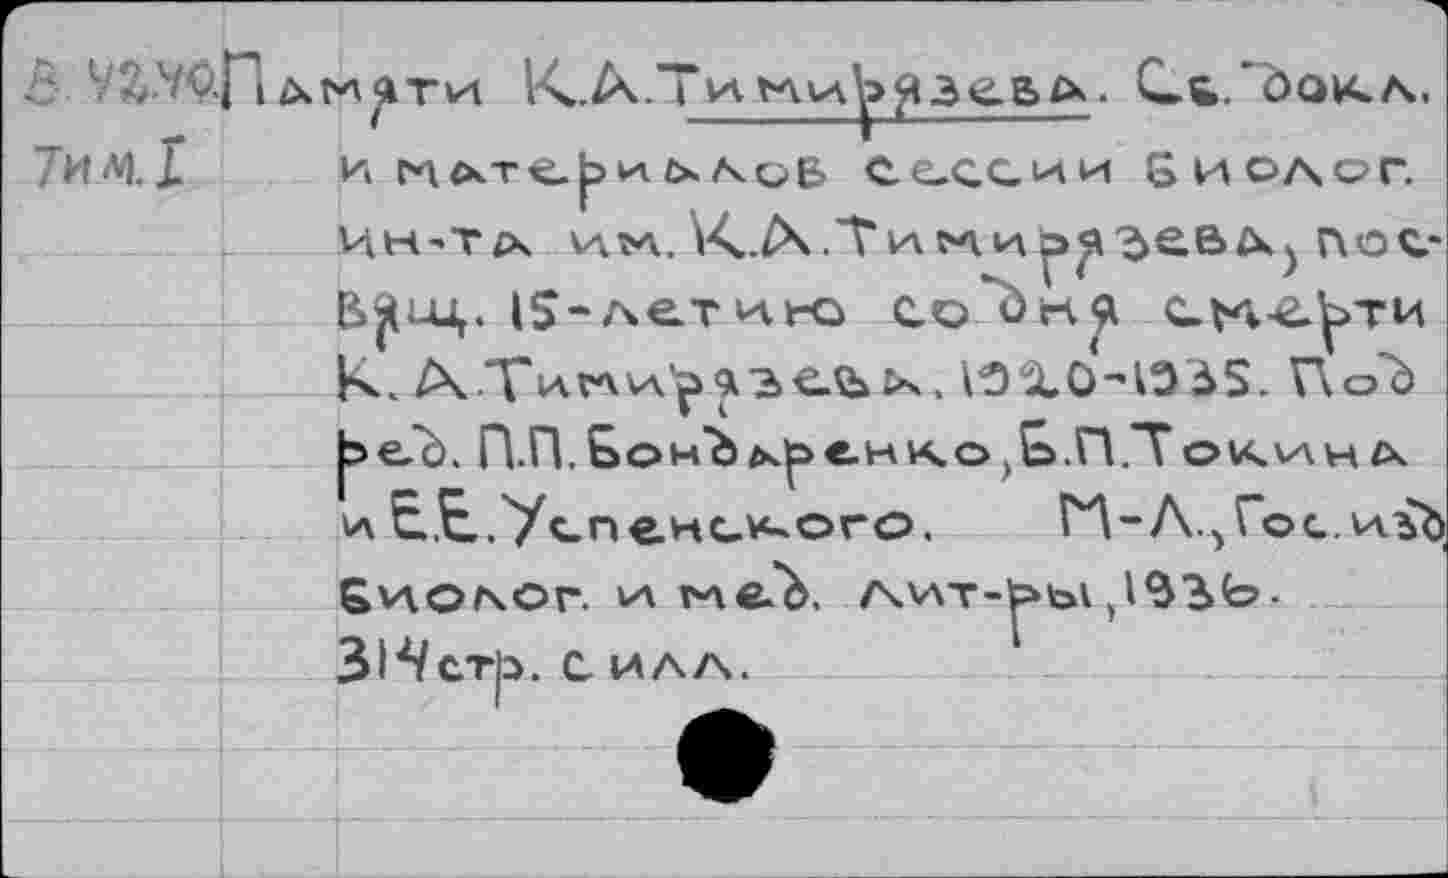 В 42.40. Памяти К.А.Тимирязева. Сб. докл.
Тим.I и материалов сессии Биолог.
ин-та им. К.А.Тимирязева, пос-
вящ. 15-летию со дня смерти
К.А.Тимирязева. 1920-1935. Под
ред. П.П.Бондаренко, Б.П.Токина
и Е.Е.Успенского. М-Л., Гос.изд
Биолог. и мед. лит-ры, 1936.
314стр. с илл.